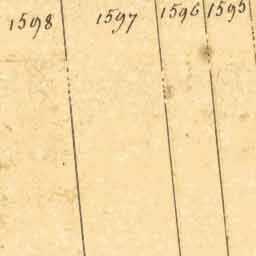 1598 1597 1596 1595